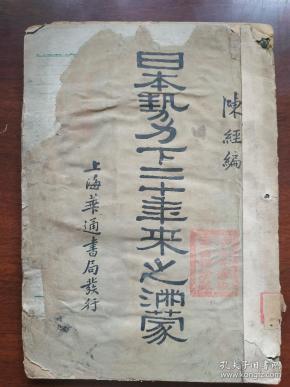 陳經編
日本勢力下二十年来之滿蒙
上海華通書局發行
孔夫子旧书网